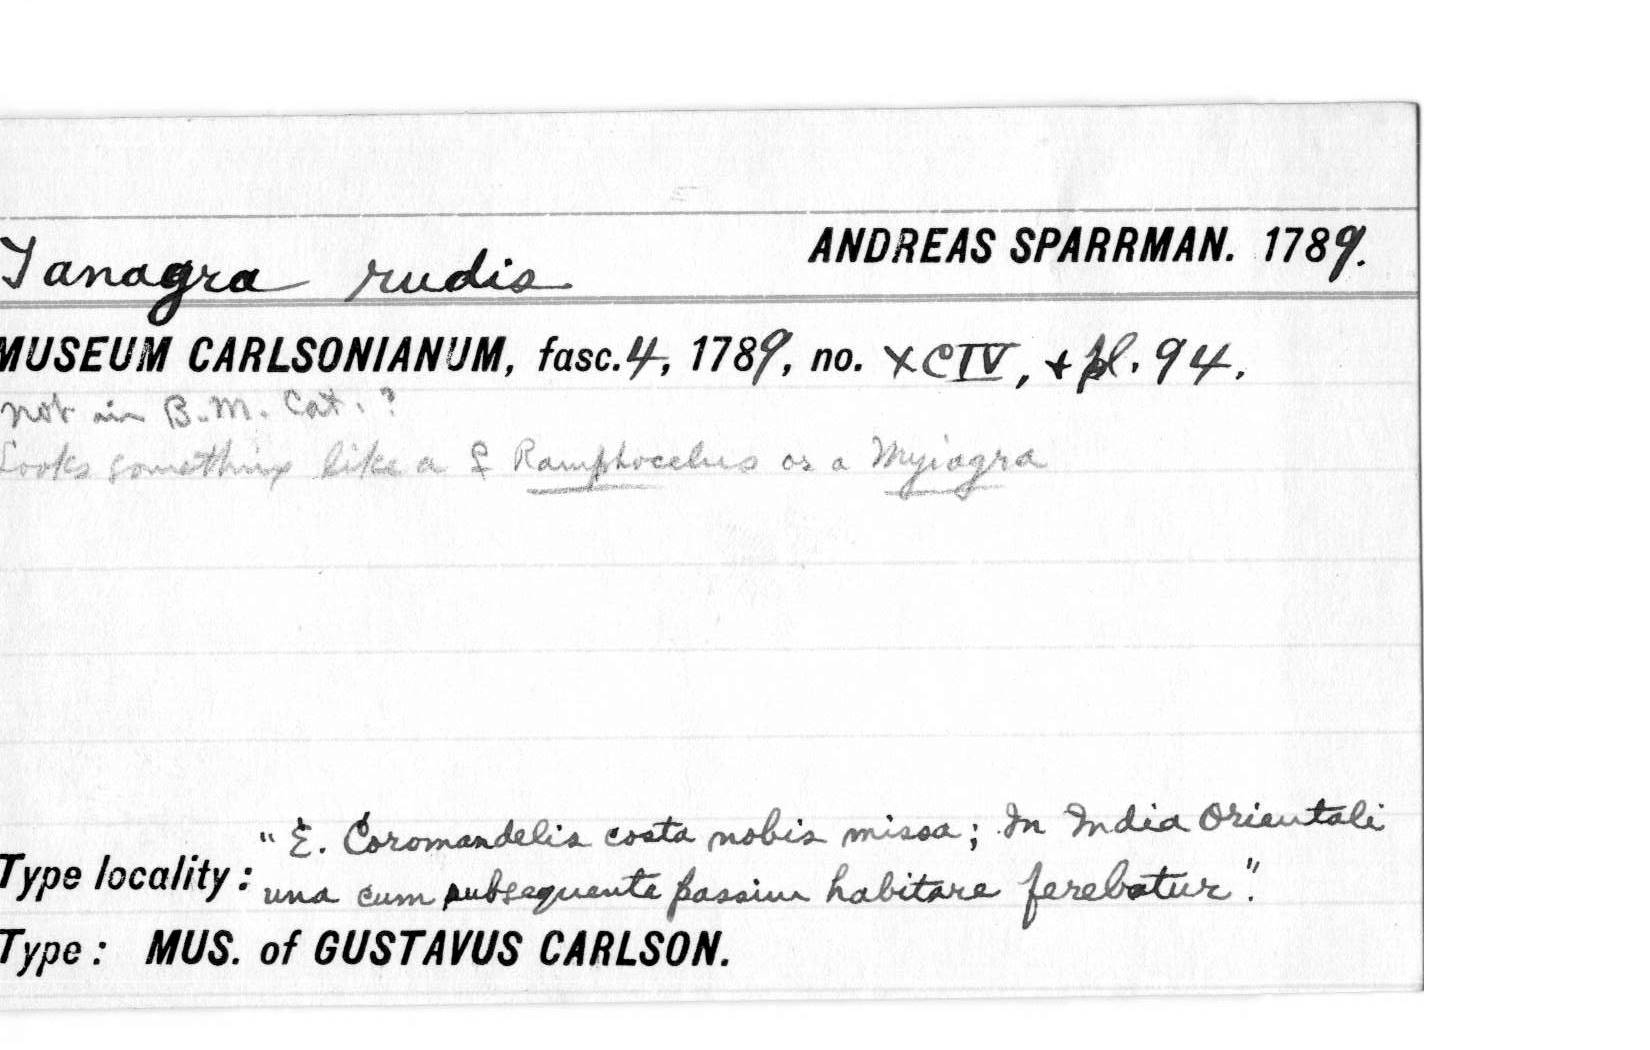 Tanagra rudis
ANDREAS SPARRMAN. 1789.
MUSEUM CARLSONIANUM, fasc. 4, 1789, no. XCIV, + pl. 94.
Not in B.M. Cat. ?
Looks something like a ♀ Ramphocelus or a Myiagra
"E. Coromandelis costa nobis missa; In India Orientali
Type locality: una cum subsequente passim habitare ferebatur".
Type: MUS. of GUSTAVUS CARLSON.